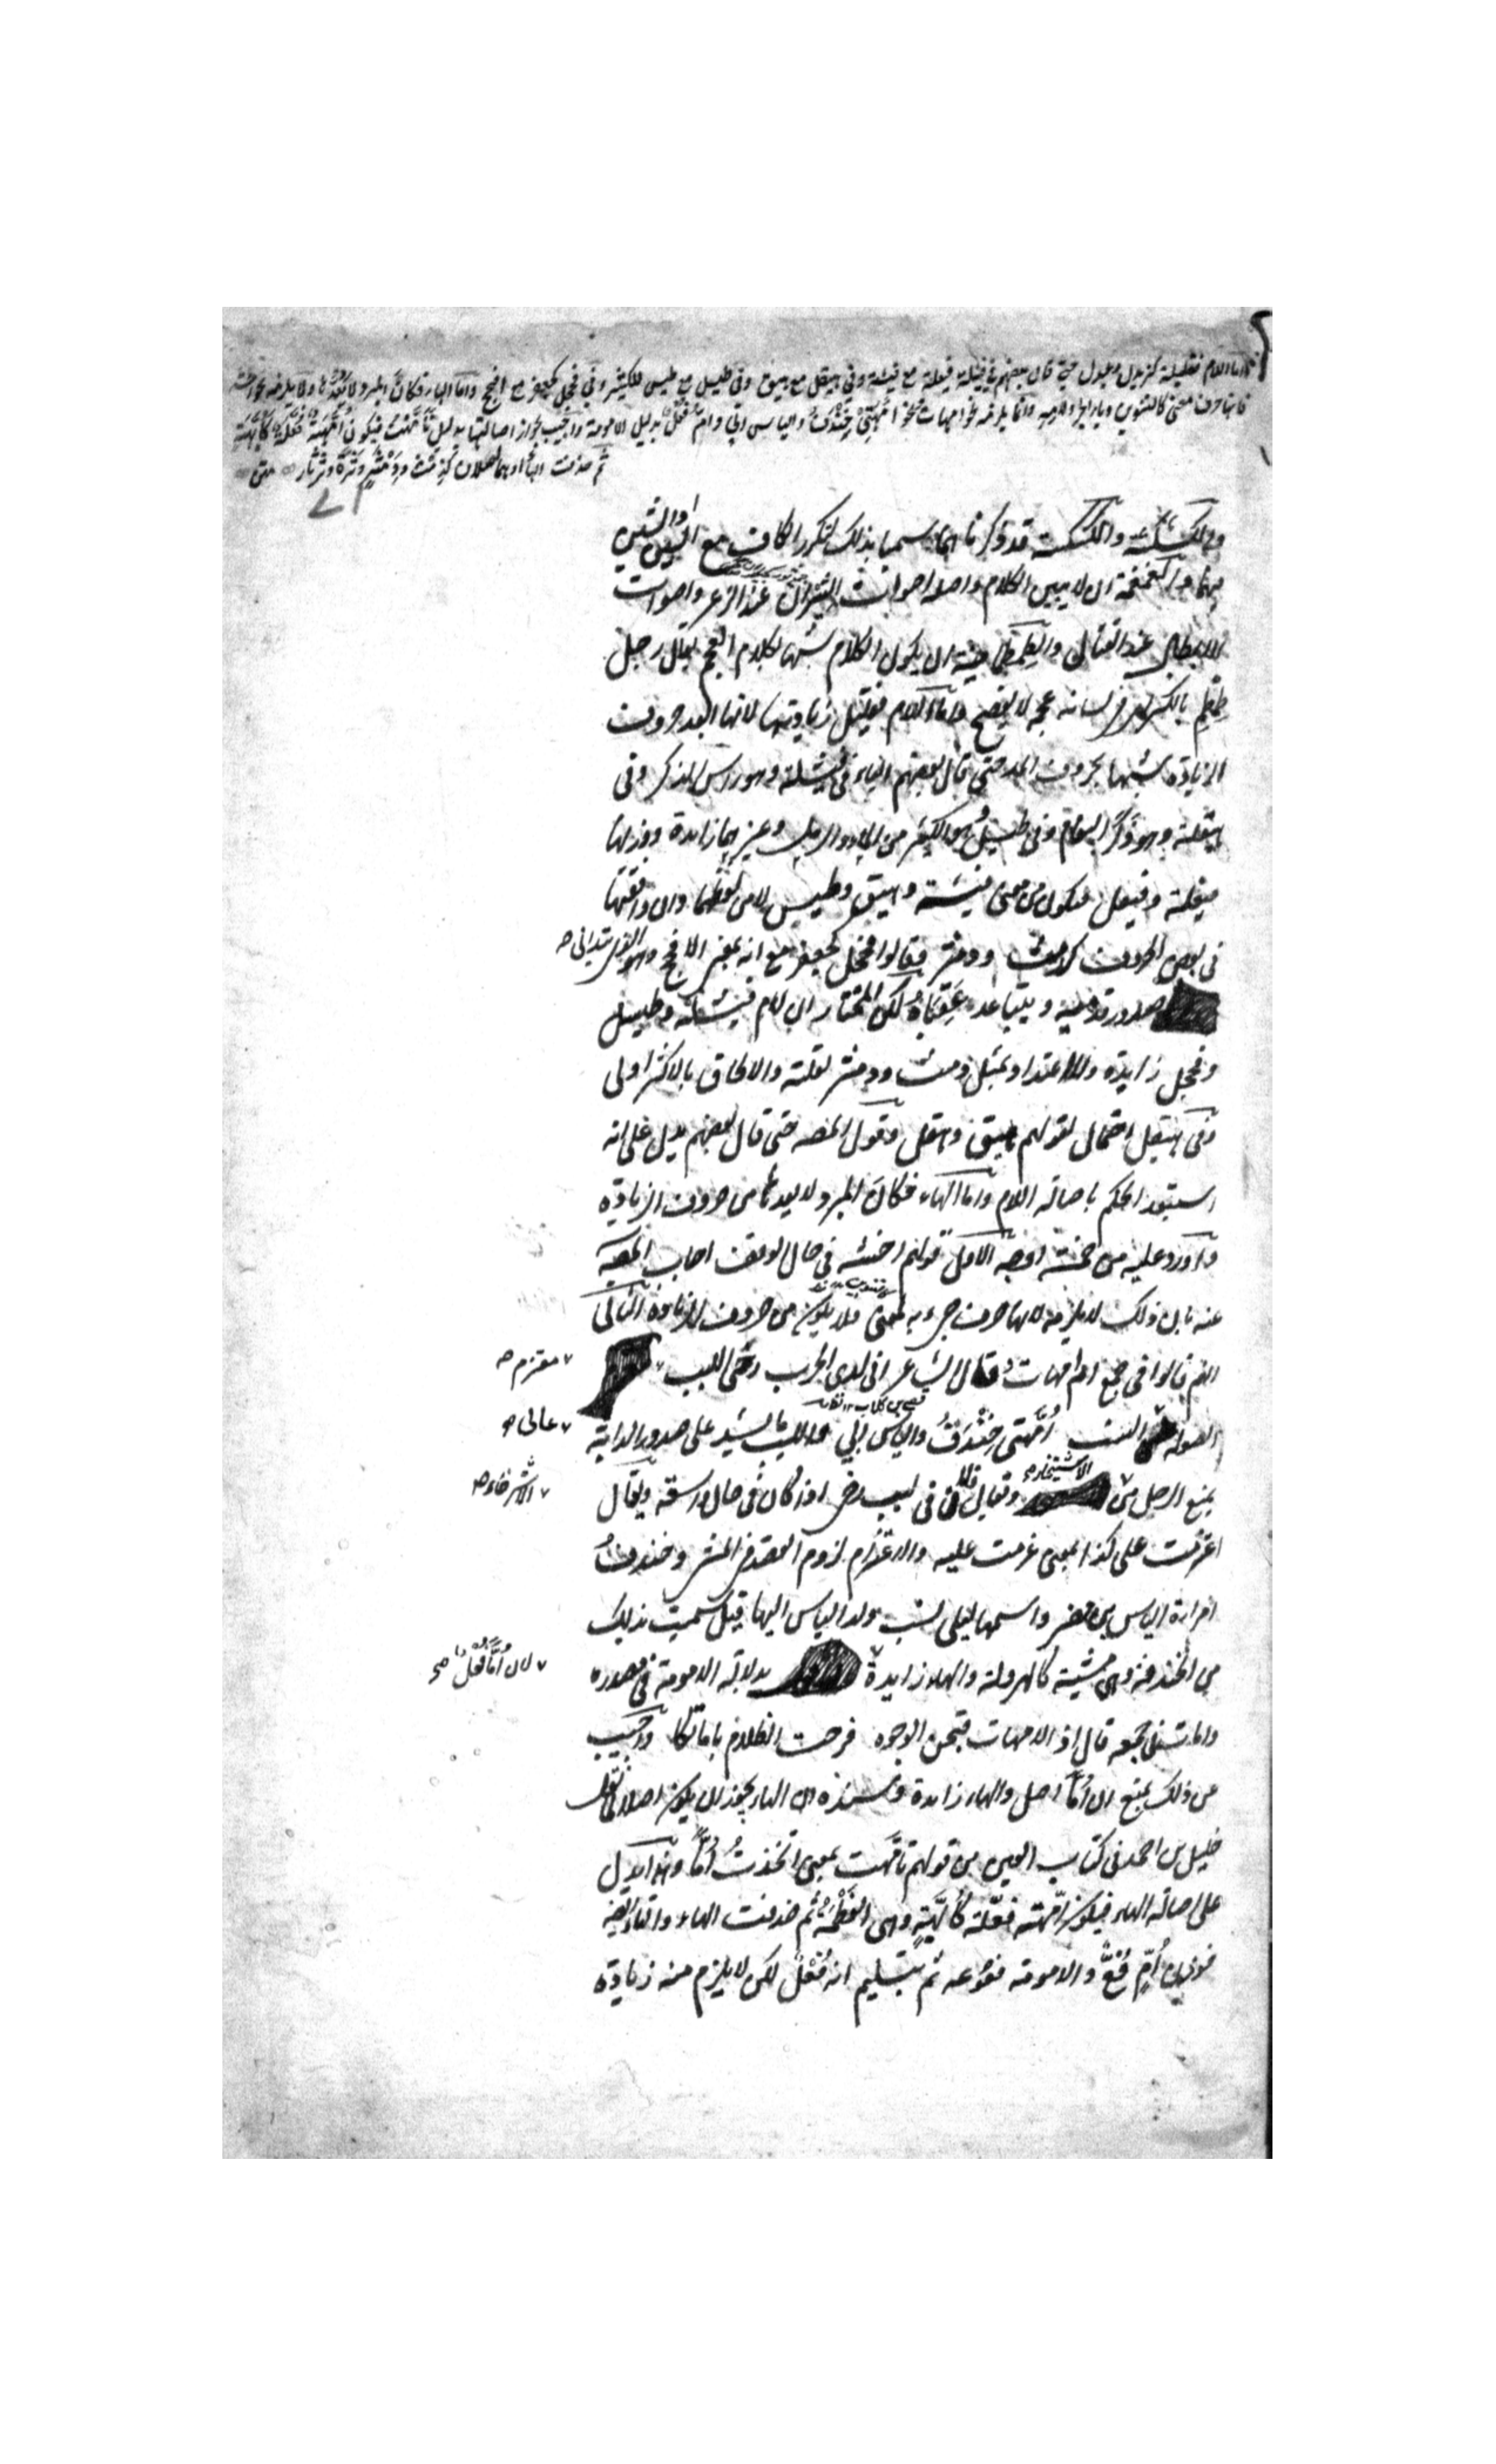 واما اللام فقليلة كزيدل وعبدل حتى قال بعضهم في فيشلة فيعلة مع فيشة وفي هيقل مع هيق وفي طيسل مع طيس للكثير وفي فحجل كجعفر مع افحج واما الهاء فكان المبرد لا يعدها ولا يلزمه نحو اخشه
فانها حرف معنى كالتنوين وباء الجر ولامه وانما يلزمه نحو امهات ونحو أُمَّهَتِي خِنْدِفُ والياس ابي وامّ فُعْلٌ بدليل الامومة واجيب بجواز اصالتها بدليل تَأَمَّهْتُ فيكون أُمَّهَةٌ فُعَّلَةً كأُبَّهَةٍ
ثم حذفت الهاء او هما اصلان كدمث ودمثر وثرة وثرثار متن
والكشكشة والكسكسة قد ذكرنا انهما سميا بذلك لتكرر الكاف مع السين او الشين
فيهما والغمغمة ان لا يبين الكلام واصله اصوات الثيران عند الذعر واصوات
الابطال عند القتال والطمطمانية ان يكون الكلام شبيها بكلام العجم يقال رجل
طمطم بالكسر في لسانه عجمة لا يفصح واما اللام فقليل زيادتها لانها ابعد حروف
الزيادة شبها بحروف المد حتى قال بعضهم الياء في فيشلة وهو راس الذكر وفي
هيقلة وهو ذكر النعام وفي طيسل وهو الكثير من الماء والرمل وغيرهما زايدة ووزنها
فيعلة وفيعل فتكون من معنى فيشة وهيق وطيس لا من لفظها وان وافقتها
في بعض الحروف كدمث ودمثر فقالوا فحجل كجعفر مع انه بمعنى الافحج وهو الذي يتدانى
صدور قدميه ويتباعد عقباه لكن المختار ان لام فيشلة وطيسل
وفحجل زايدة ولا اعتداد بمثل دمث ودمثر لقلته والالحاق بالاكثر اولى
وفي هيقل احتمال لقولهم هيق وهقل وقول المصه حتى قال بعضهم يدل على انه
استبعد الحكم باصالة اللام واما الهاء فكان المبرد لا يعدها من حروف الزيادة
واورد عليه من خمسة اوجه الاول قولهم اخشه في حال الوقف اجاب المصنف
عنه بان ذلك لا يلزمه لانها حرف جيء به لمعنى فلا يكون من حروف الزيادة الثاني
انهم قالوا في جمع ام امهات وقال الشاعر اني لدى الحرب رخي اللبب
معتزم
الصولة النسب أُمَّهَتِي خِنْدِفُ والياس ابي واللبب ما يشد على صدر الدابة
عالي
يمنع الرحل من الاستيخار ويقال فلان في لبب رخي اذا كان في حال واسعة ويقال
اعتزمت على كذا بمعنى عزمت عليه والاعتزام لزوم القصد في المشي وخندف
امراة الياس بن مضر واسمها ليلى نسب ولد الياس اليها قيل سميت بذلك
من الخندفة وهي مشية كالهرولة والهاء زايدة بدلالة الامومة في مصدره
لان أُمًّا فُعْلٌ
واماتٍ في جمعه قال اذ الامهات قبحن الوجوه فرجت الظلام باماتكا واجيب
عن ذلك بمنع ان أُمًّا اصل والهاء زايدة وسنده ان الهاء يجوز ان يكون اصلا لما نقل
خليل بن احمد في كتاب العين من قولهم تأمهت بمعنى اتخذت أُمًّا وهذا يدل
على اصالة الهاء فيكون امهة فعلة كأبهة وهي العظمة ثم حذفت الهاء والتاء
فوزن أمّ فُعٌّ والامومة فعوعة ثم بتسليم انه فُعْلٌ لكن لا يلزم منه زيادة